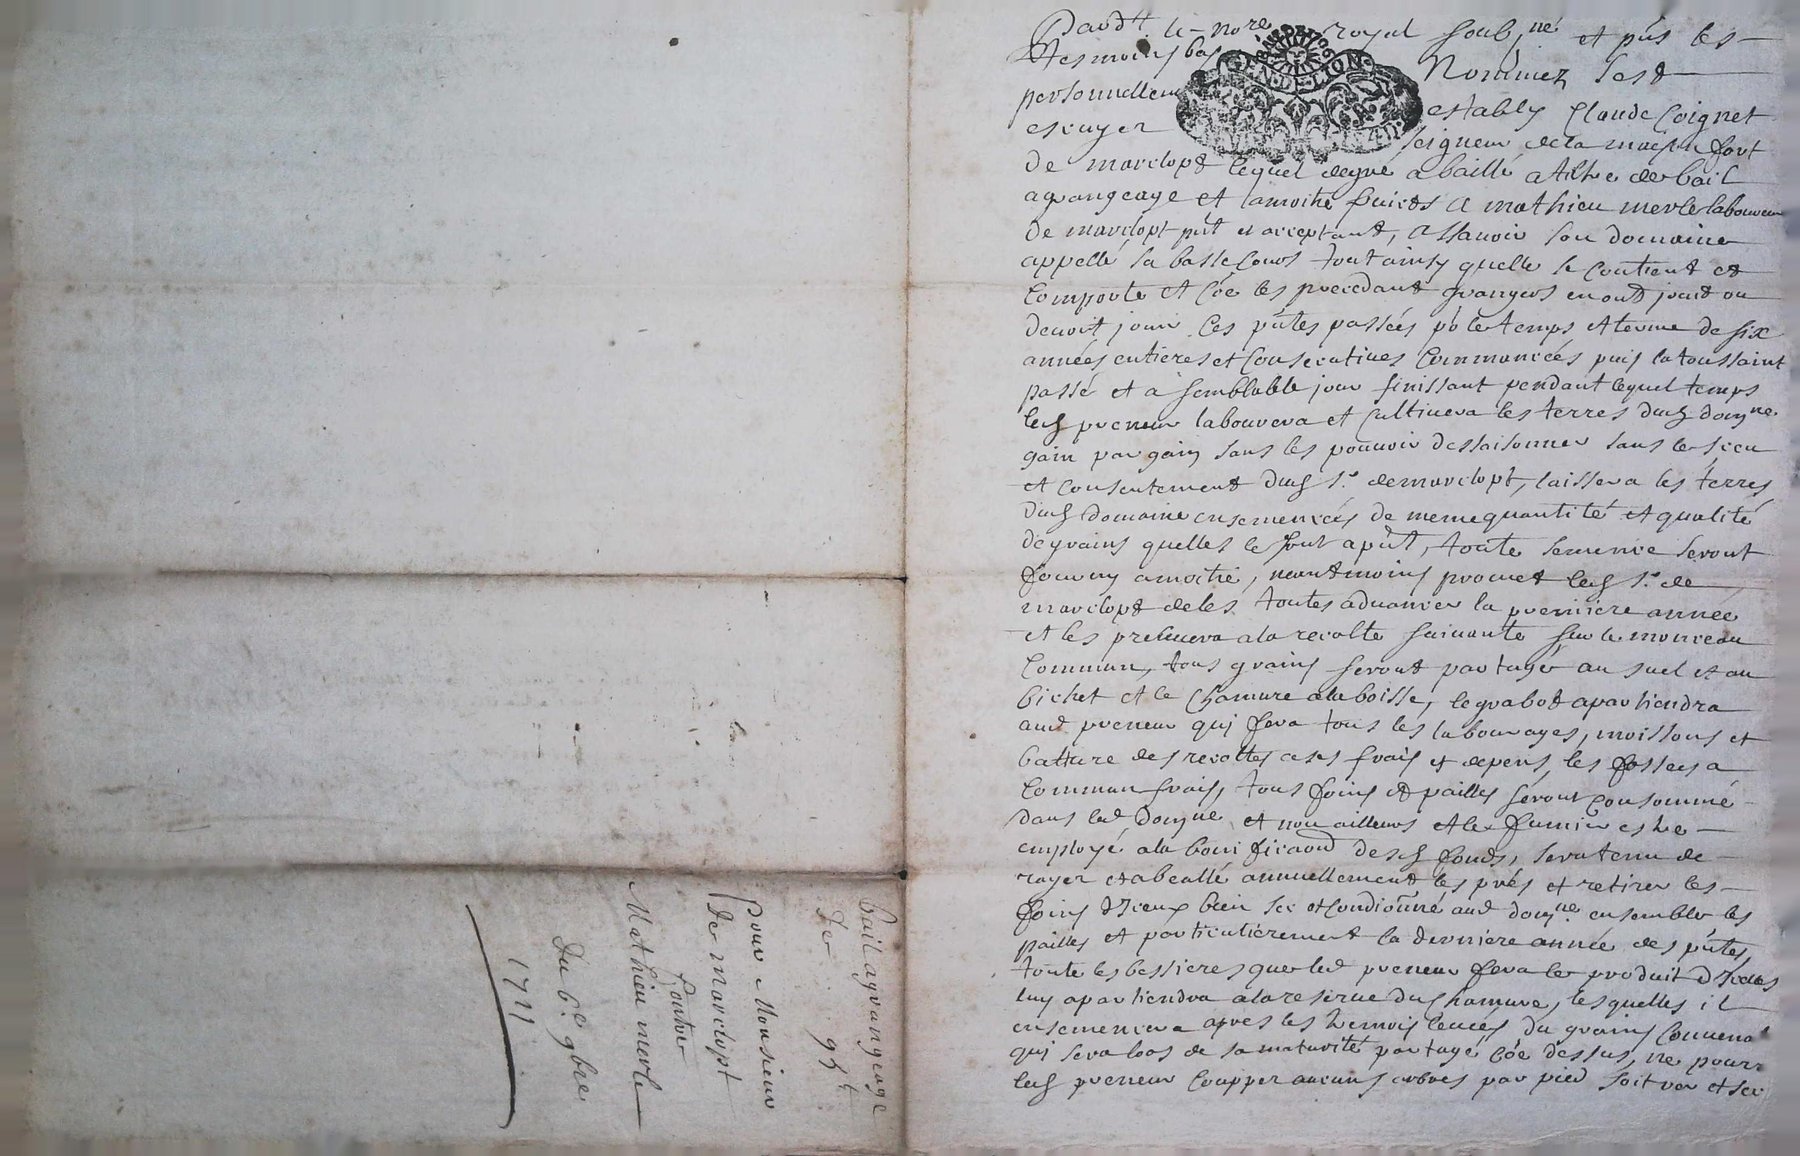 Pardt le nore royal soubné et pñs les
tesmoins bas Nommez s'est
personnellem estably Claude Coignet
escuyer seigneur de la maison fort
de marclopt lequel degré a baillé a titre de bail
a grangeage et a moitié fruicts a mathieu merle laboureur
de marclopt pñt et acceptant, assavoir son domaine
appellé la basse Cour tout ainsy quelle se Contient et
Comporte et Cõe les precedant grangers en ont jouit ou
devoit jouir Ces pñtes passées pr le temps et terme de six
années entieres et Consecutives Commancées puis la toussaint
passé et a semblable jour finissant pendant lequel temps
led preneur labourera et cultivera les terres dud domne
gain par gain sans les pouvoir dessaisonner sans le sceu
et Consentement dud sr de marclopt, laissera les terres
dud domaine ensemencées de meme quantité et qualité
de grains quelles le sont a pñt, toute semence seront
fourny a moitié, neantmoins promet led sr de
marclopt de les toutes advancer la premiere année
et les prelevera a la recolte suivante sur le monceau
Commun, tous grains seront partagé au suel et au
bichet et le Chanvre a la boisse, le grabot apartiendra
aud preneur qui fera tous les labourages, moissons et
batture des recoltes a ses frais et depens, les fossés a
Commun frais, tous foins et pailles seront Consommé
dans led domne et non ailleurs et le fumier estre
employé a la bonificaon desd fonds, sera tenu de
rayer et abealle annuellement les prés et retirer les
foins d'Iceux bien sec et Condionné aud domne ensemble les
pailles et particulièrement la derniere année des pñtes
toute les bessieres que led preneur fera le produit d'Icelles
luy apartiendra a la reserve du Chanvre, lesquelles il
ensemencera apres les tremois levées du grains Convena
qui sera lors de sa maturité partagé Cõe dessus, ne pourr
led preneur Coupper aucuns arbres par pied soit ver et sec
bail a grangeage
de 95 lt
pour Monsieur
de marclopt
Contre
Mathieu merle
Du 6e 9bre
1711
GEN. DE LION